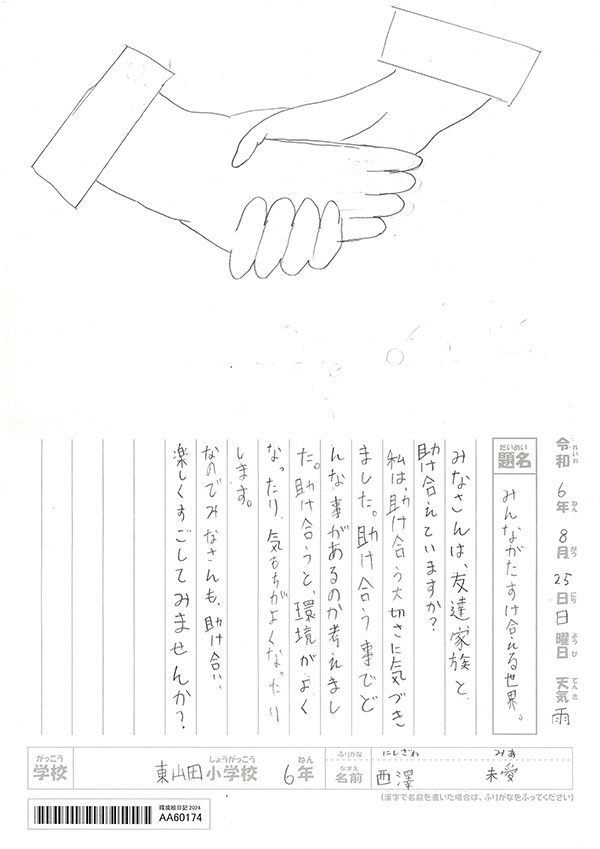 令和6年8月25日日曜日 天気 雨
れいわ ねん がつ にち ようび てんき
だいめい
題名 みんながたすけ合える世界。
みなさんは、友達家族と、
助け合えていますか?
私は、助け合う大切さに気づき
ました。助け合う事でど
んな事があるのか考えまし
た。助け合うと、環境がよく
なったり、気もちがよくなったり
します。
なのでみなさんも、助け合い、
楽しくすごしてみませんか?
がっこう しょうがっこう ねん
学校 東山田小学校 6年
ふりがな にしざわ みあ
なまえ
名前 西澤 未愛
(漢字で名前を書いた場合は、ふりがなをふってください)
環境絵日記2024
AA60174